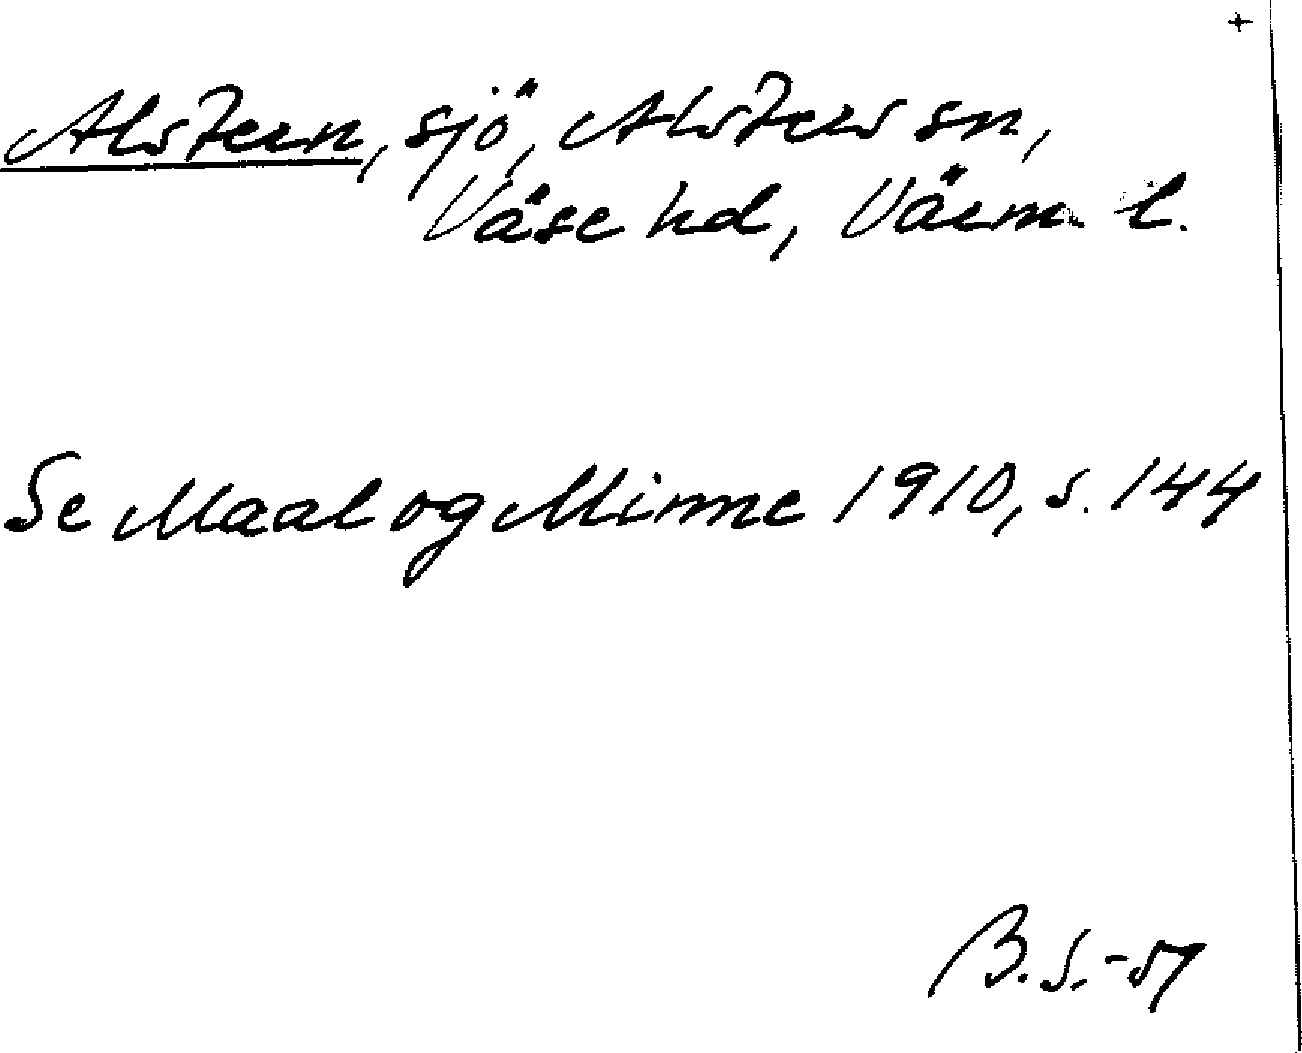 +
Alstern, sjö, Alsters sn,
Väse hd, Värm. l.
Se Maal og Minne 1910, s. 144
B.S.-57